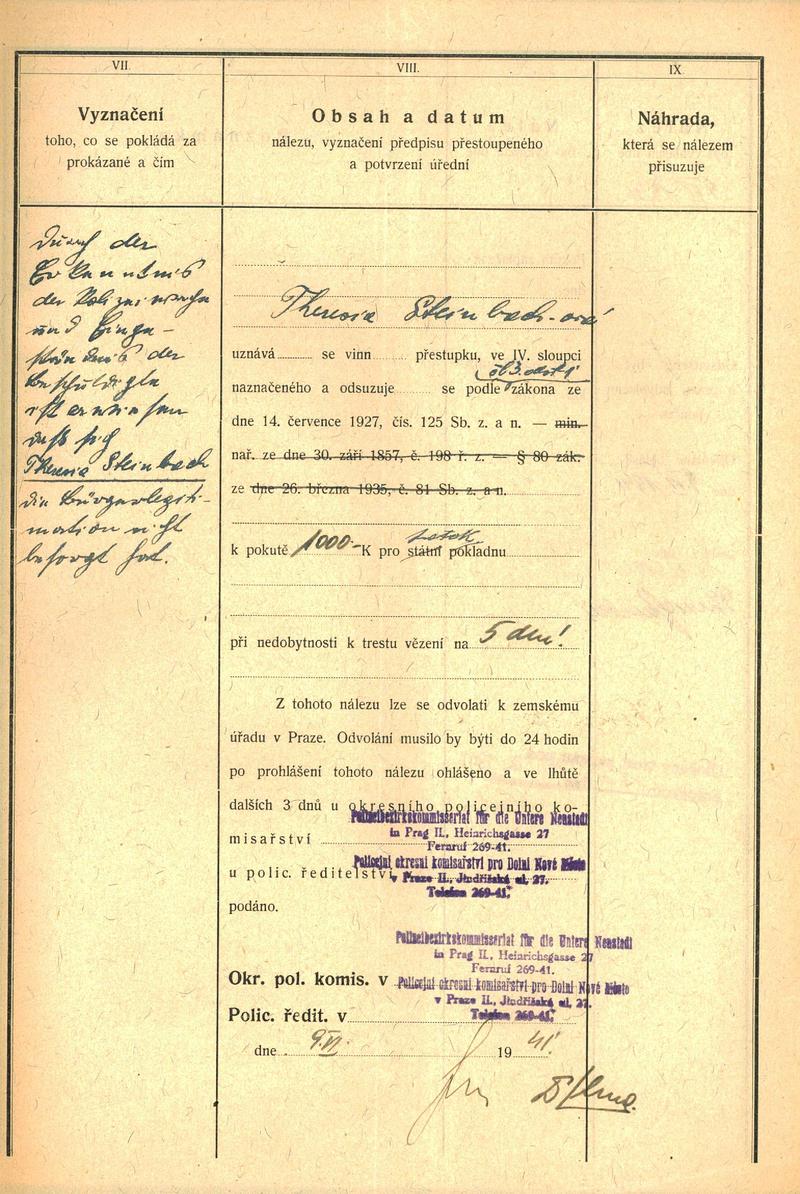 VII.
Vyznačení
toho, co se pokládá za
prokázané a čím
VIII.
Obsah a datum
nálezu, vyznačení předpisu přestoupeného
a potvrzení úřední
IX
Náhrada,
která se nálezem
přisuzuje
Durch der
Erkenntnis
der Polizeiwache
und Einge-
ständnis der
Beschuldigte
ist erwiesen
daß sich
Theresia Steinbach
die Bürgerlegiti-
mation nicht
besorgt hat.
Theresia Steinbach-ová
uznává se vinn přestupku, ve IV. sloupci
naznačeného a odsuzuje se podle zákona ze
dne 14. července 1927, čís. 125 Sb. z. a n. — min.
nař. ze dne 30. září 1857, č. 198 ř. z. — § 80 zák.
ze dne 26. března 1935, č. 81 Sb. z. a n.
k pokutě 1000.- K pro státní pokladnu
při nedobytnosti k trestu vězení na 5 dní!
Z tohoto nálezu lze se odvolati k zemskému
úřadu v Praze. Odvolání musilo by býti do 24 hodin
po prohlášení tohoto nálezu ohlášeno a ve lhůtě
dalších 3 dnů u okresního policejního ko-
Polizeibezirkskommissariat für die Untere Neustadt
in Prag II., Heinrichsgasse 27
misařství
Fernruf 269-41.
Policejní okresní komisařství pro Dolní Nové Město
u polic. ředitelství v Praze II., Jindřišská ul. 27.
Telefon 269-41.
podáno.
Polizeibezirkskommissariat für die Untere Neustadt
in Prag II., Heinrichsgasse 27
Fernruf 269-41.
Okr. pol. komis. v Policejní okresní komisařství pro Dolní Nové Město
v Praze II., Jindřišská ul. 27.
Polic. ředit. v Telefon 269-41.
dne 9.VI. 1941.